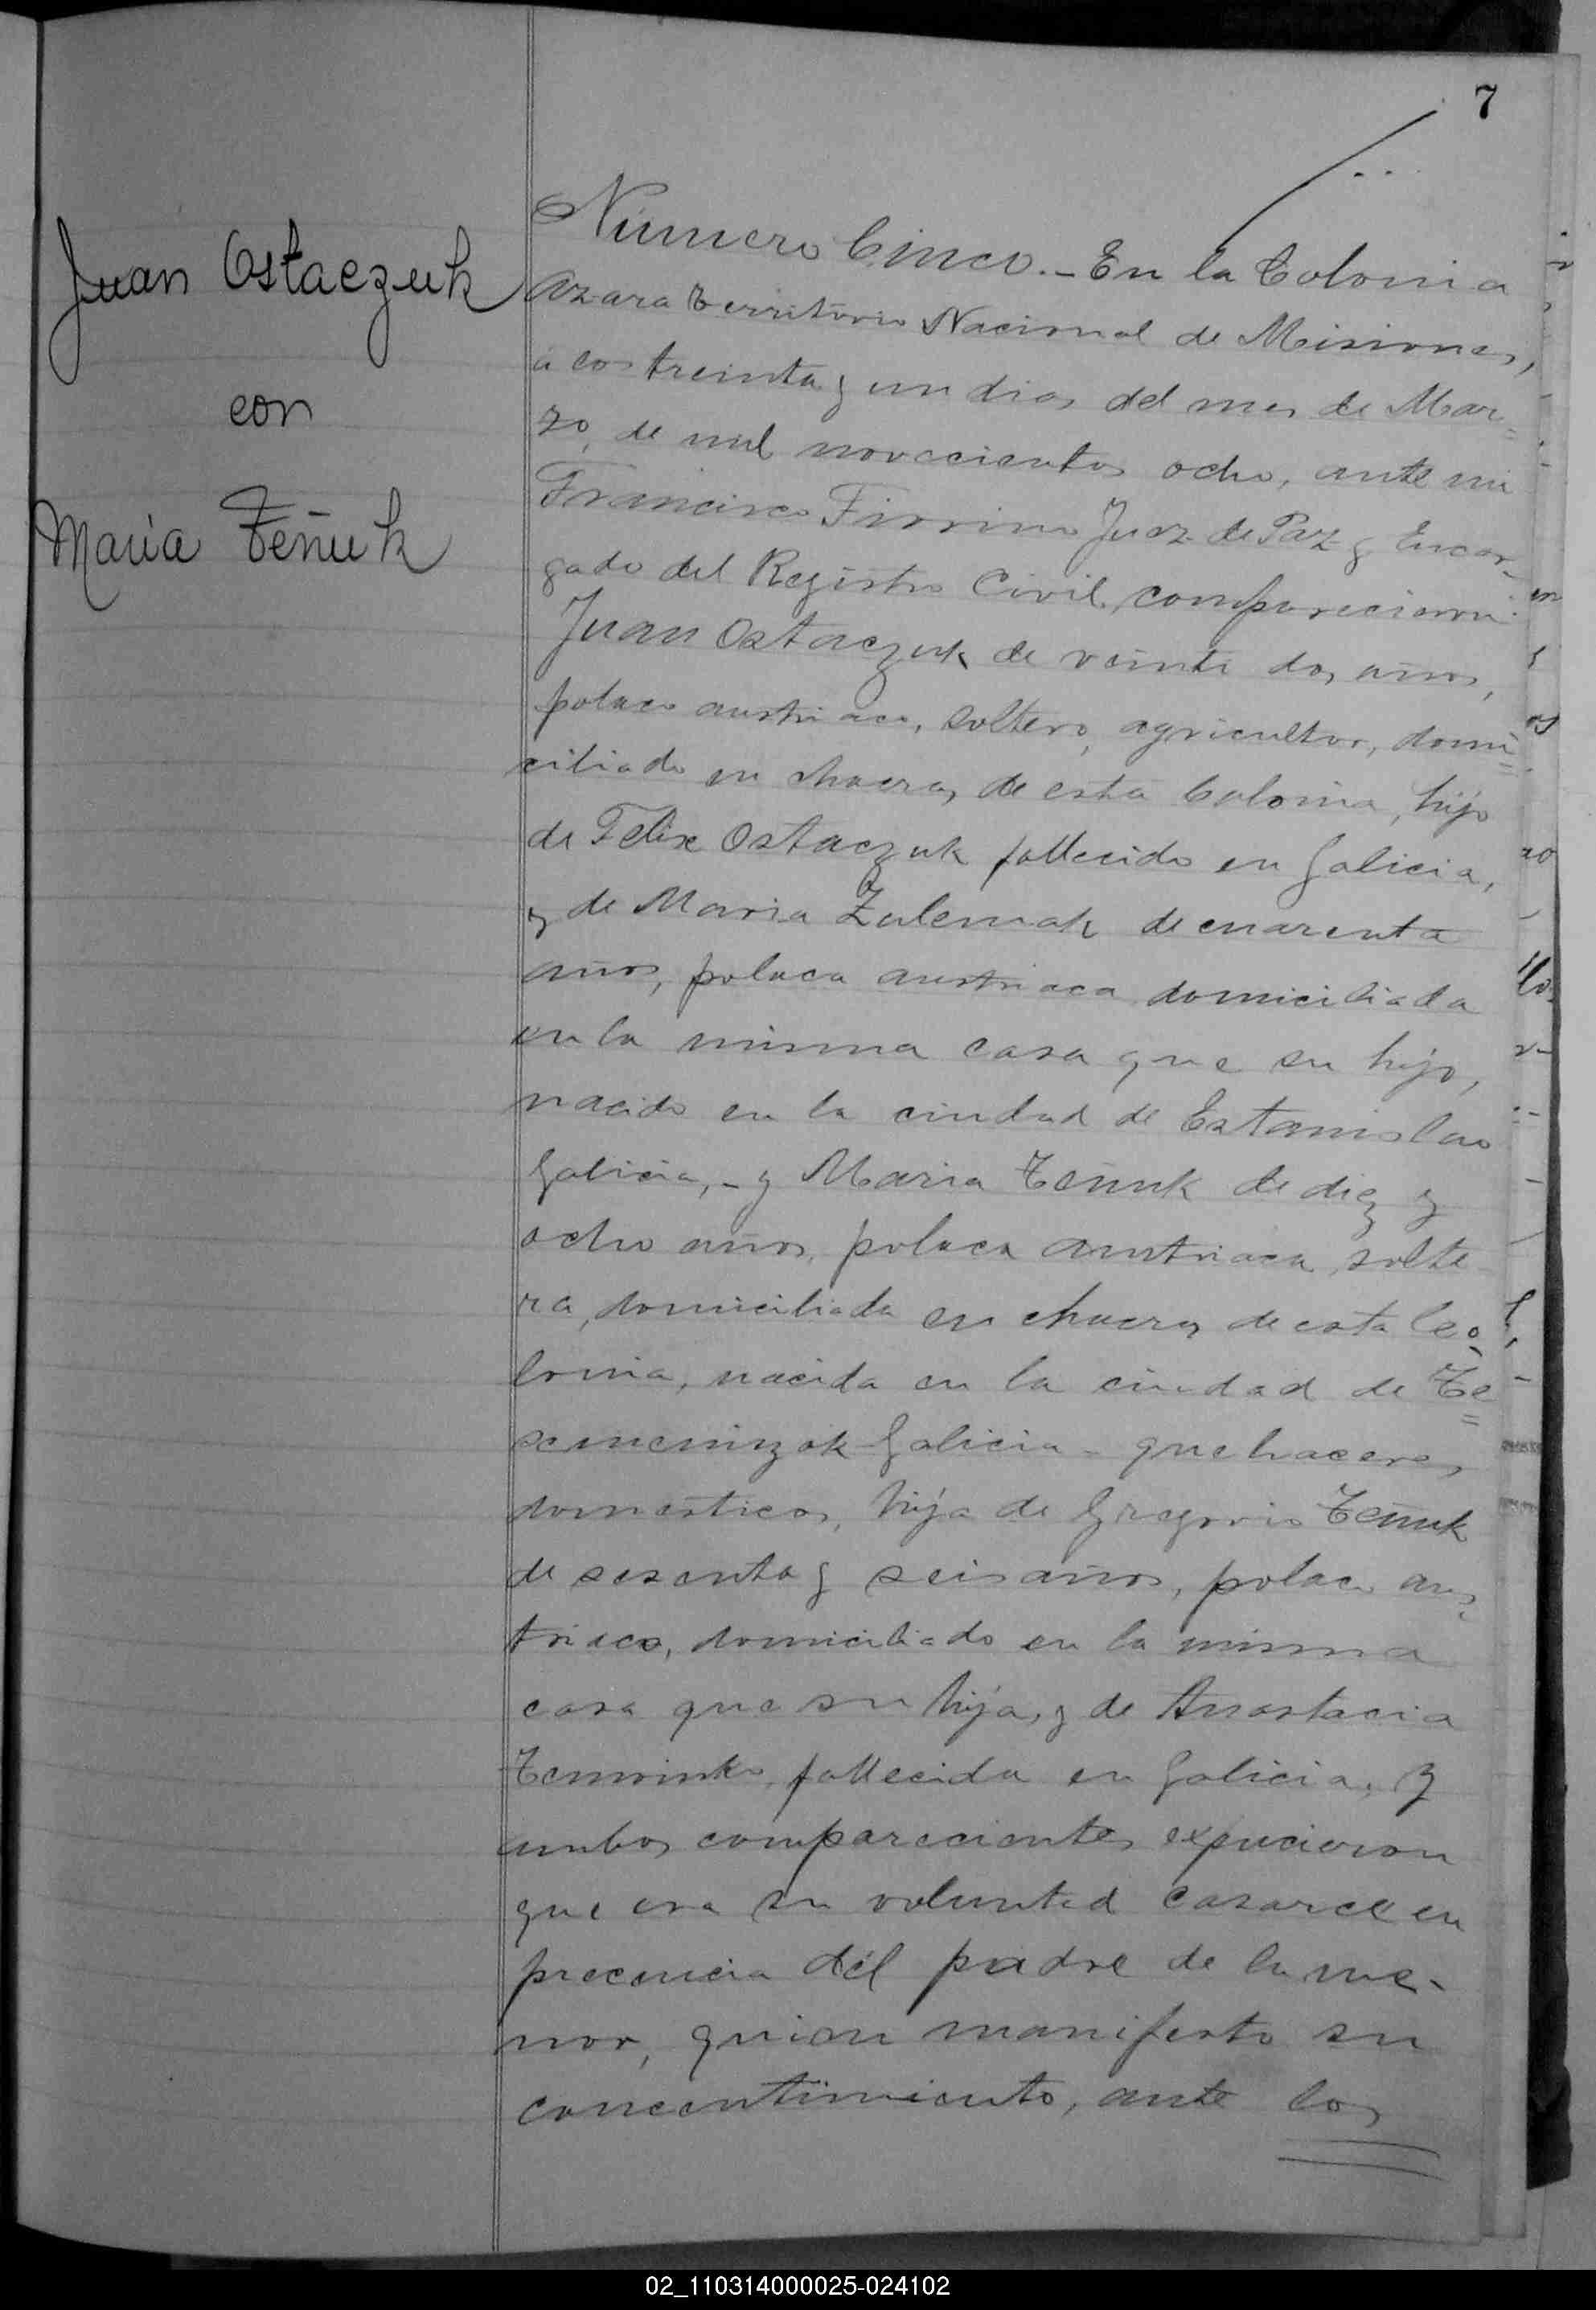 7
Juan Ostaczuk
con
Maria Teñuk
Número Cinco.- En la Colonia
Azara Territorio Nacional de Misiones,
á los treinta y un dias del mes de Mar=
zo, de mil novecientos ocho, ante mi
Francisco Fiorino Juez de Paz y Encar-
gado del Registro Civil, comparecieron:
Juan Ostaczuk de veinte dos años,
polaco austriaco, soltero, agricultor, domi=
ciliado en chacra, de esta Colonia, hijo
de Felix Ostaczuk fallecido en Galicia,
y de Maria Zulemak de cuarenta
años, polaca austriaca domiciliada
en la misma casa que su hijo,
nacido en la ciudad de Estanislao
Galicia,- y Maria Teñuk de diez y
ocho años, polaca austriaca, solte
ra, domiciliada en chacra, de esta Co-
lonia, nacida en la ciudad de Te=
Galicia - quehaceres
domesticos, hija de Gregorio Teñuk
de sesenta y seis años, polaco aus-
triaco, domiciliado en la misma
casa que su hija, y de Anastacia
fallecida en Galicia, y
ambos comparecientes expucieron
que era su voluntad casarce en
precencia del padre de la me-
nor, quien manifesto su
concentimiento, ante los
02_110314000025-024102